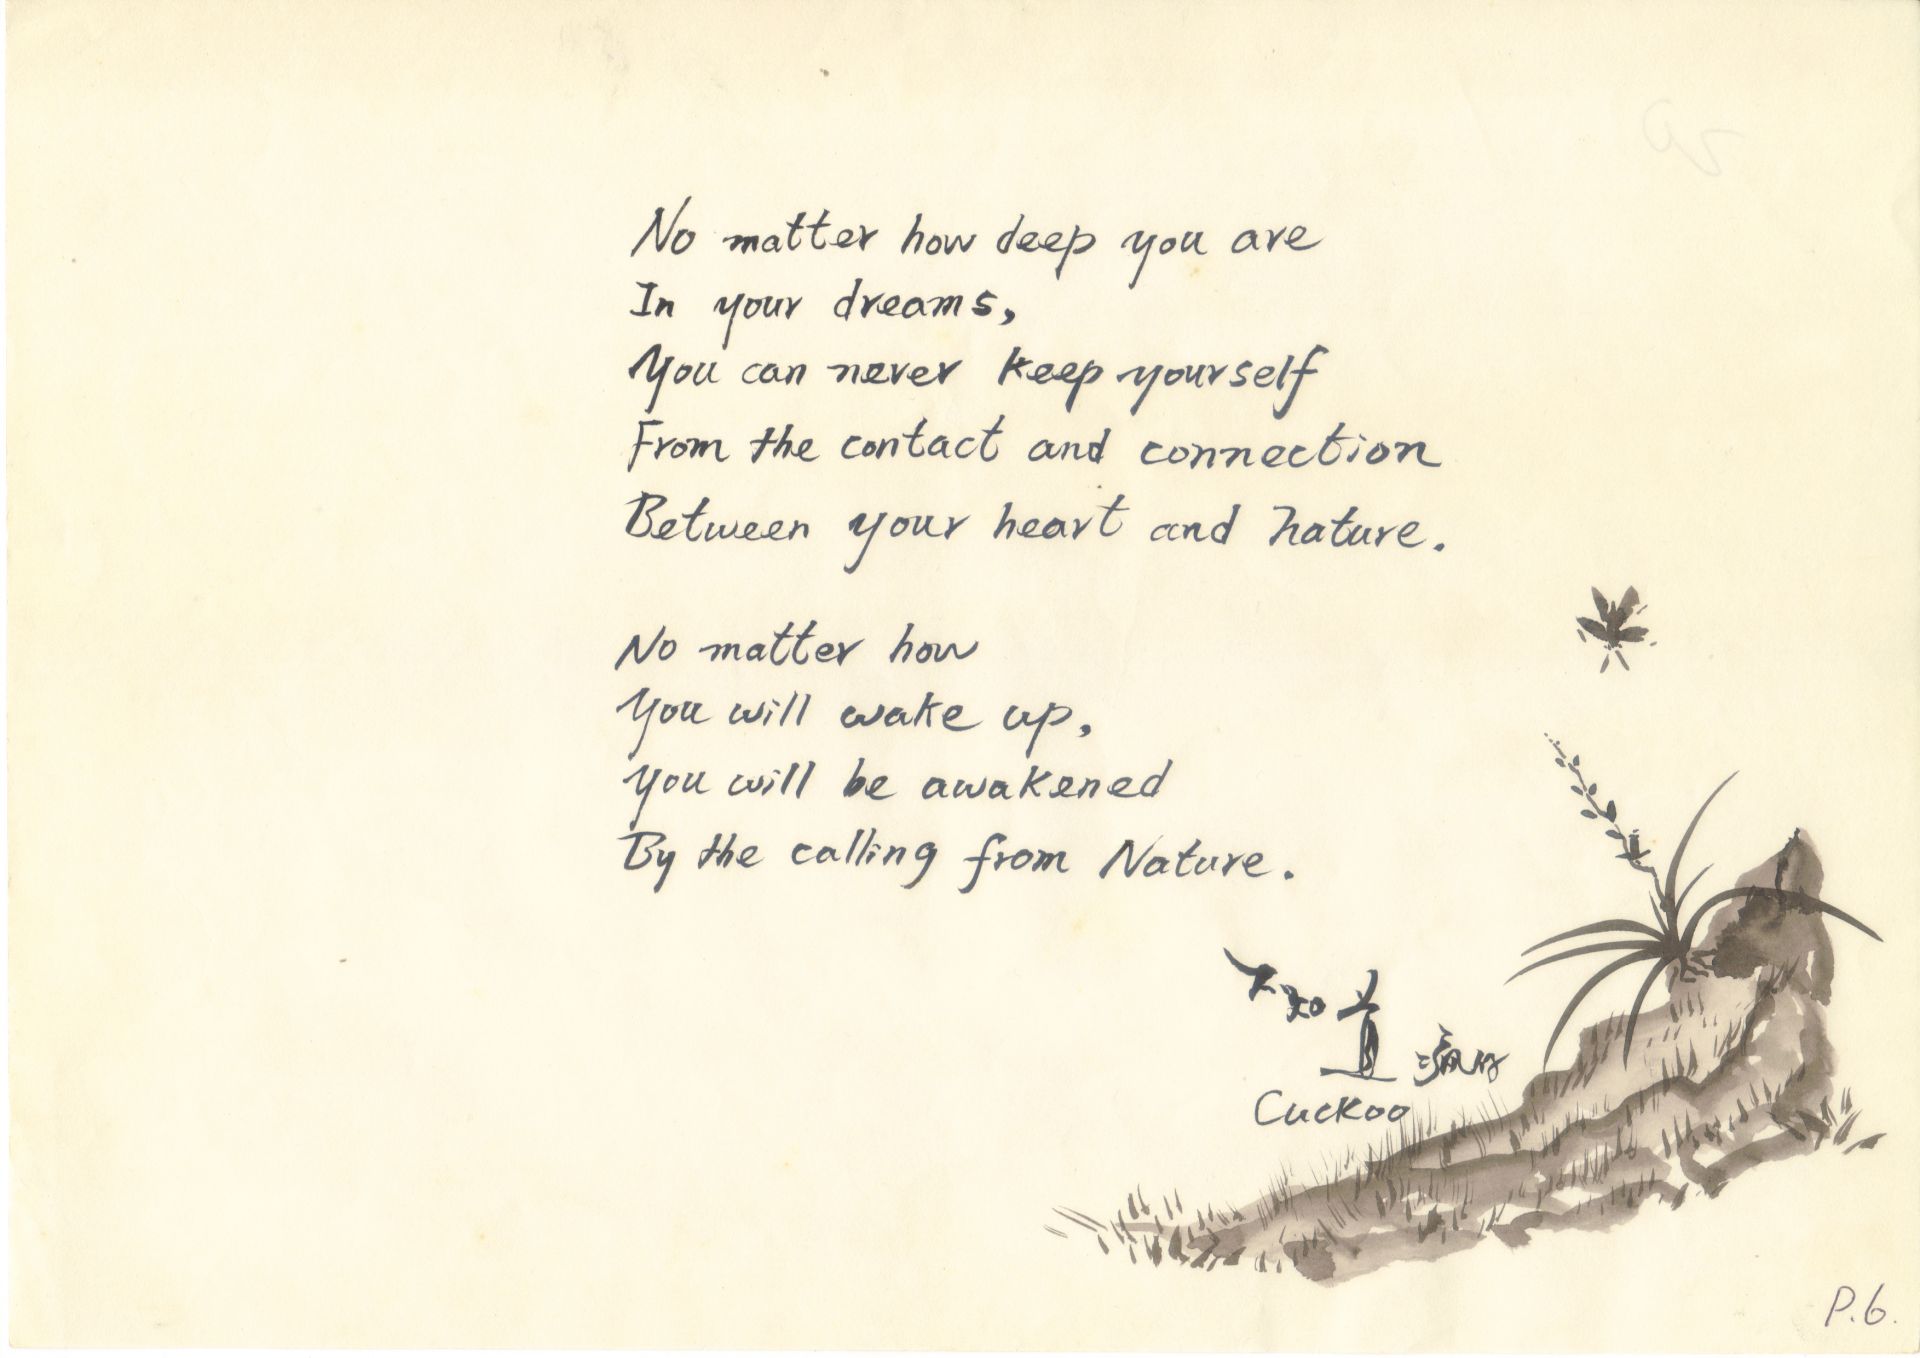 No matter how deep you are
In your dreams,
You can never keep yourself
From the contact and connection
Between your heart and nature.
No matter how
You will wake up,
You will be awakened
By the calling from Nature.
不知道
Cuckoo
P.6.